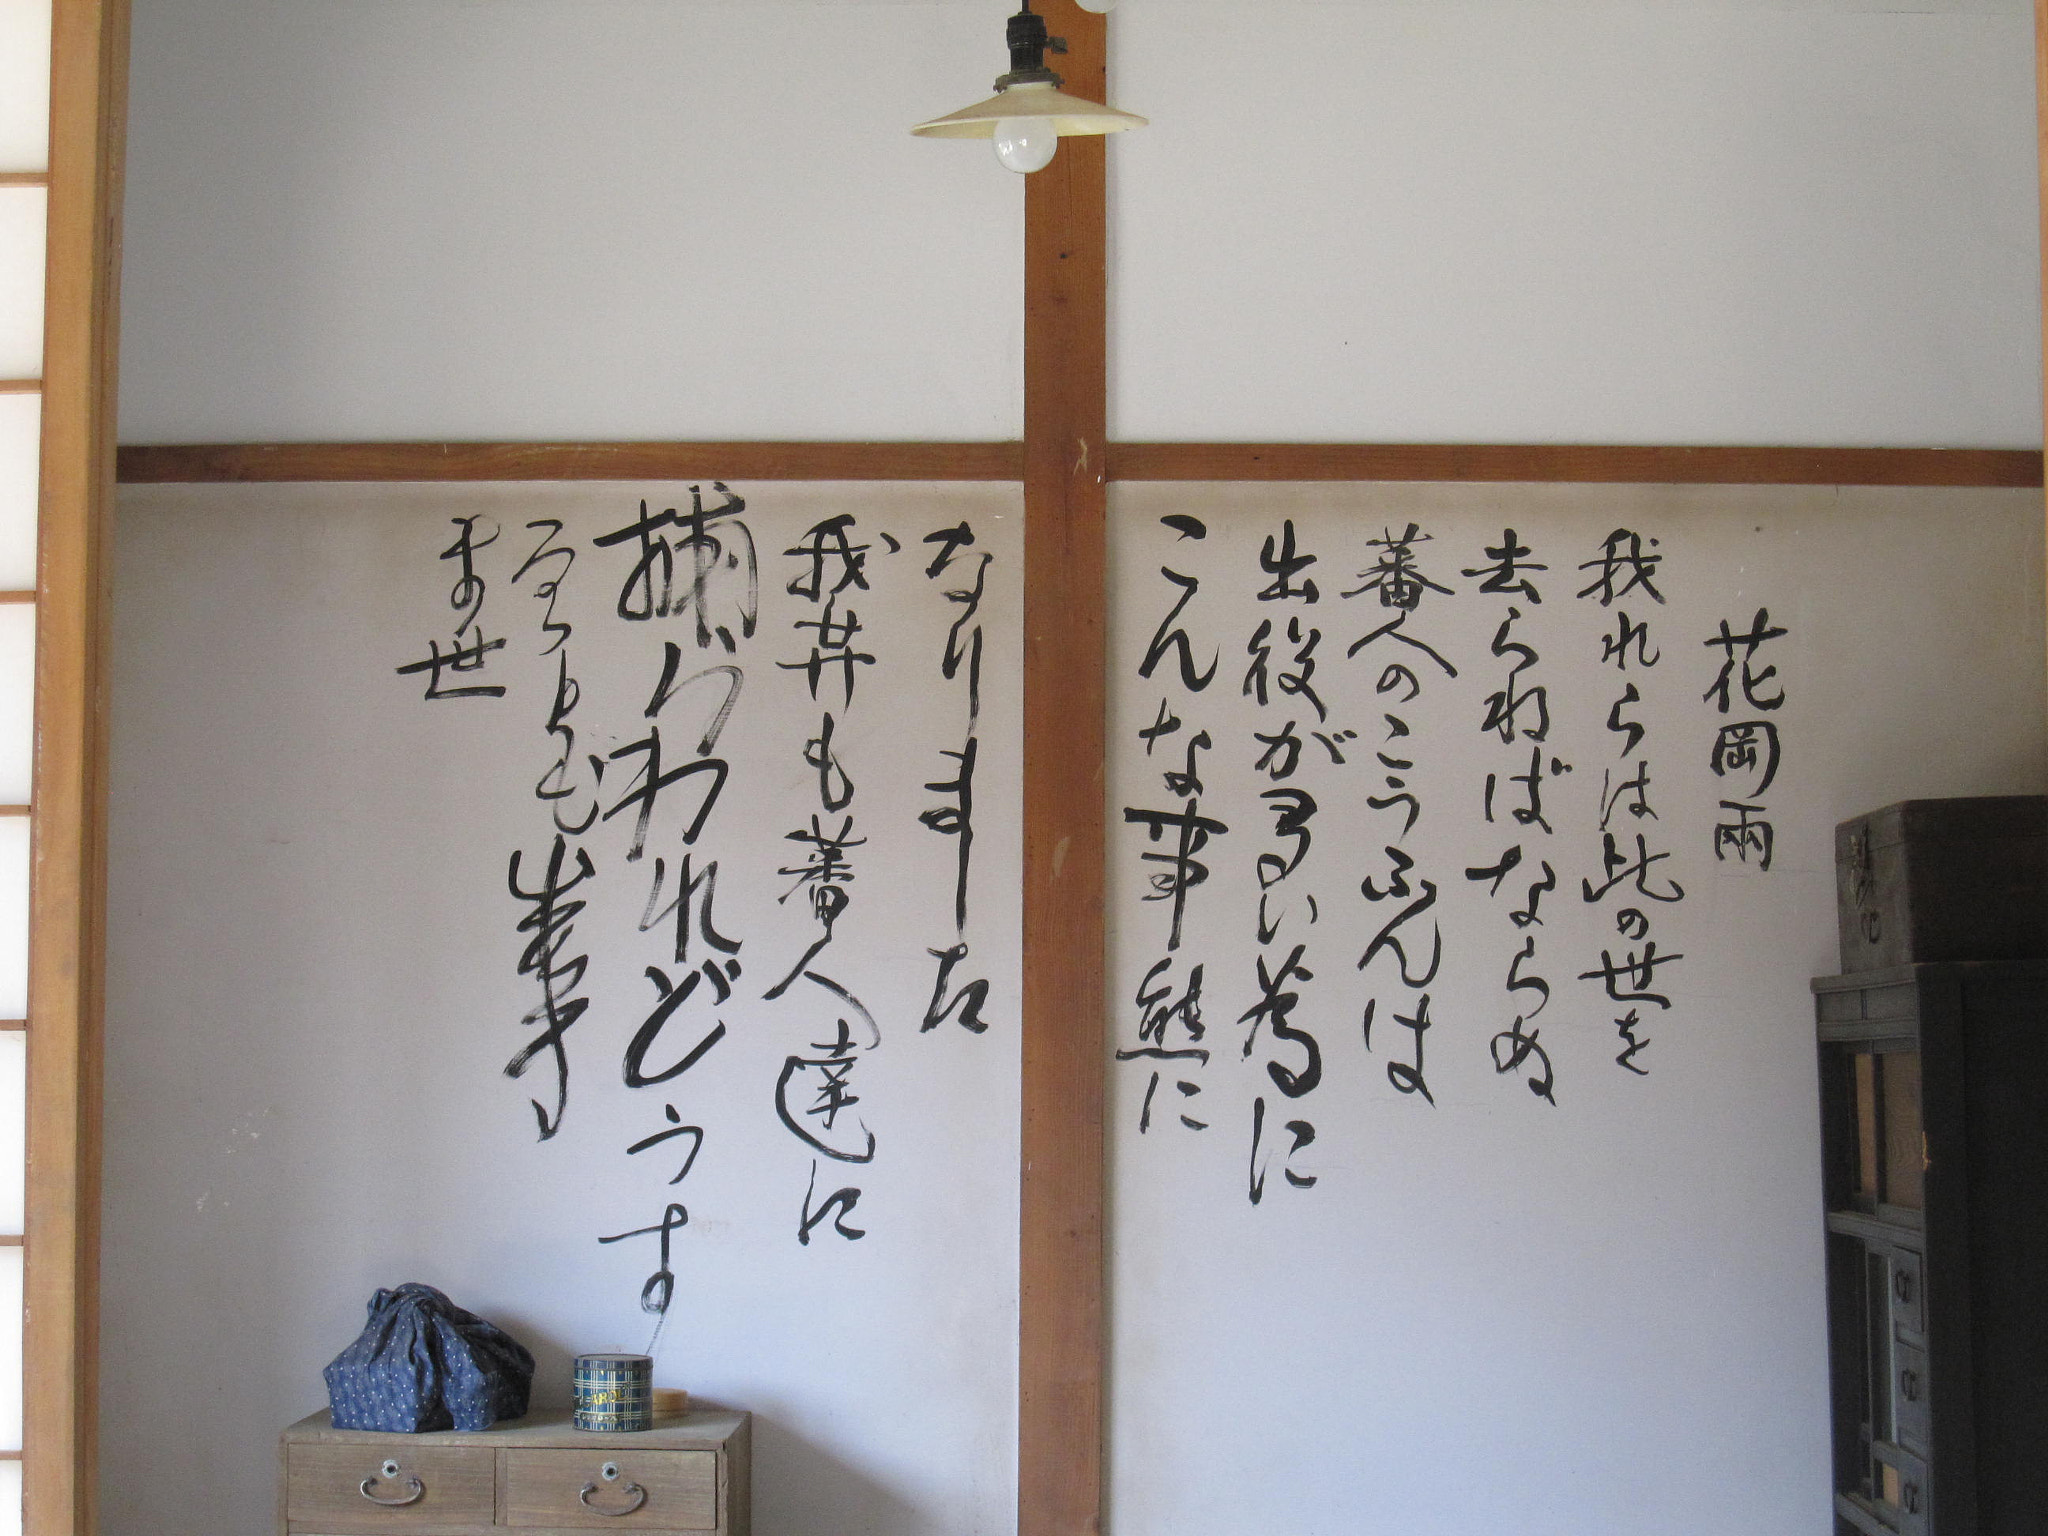 花岡両
我れらは此の世を
去らねばならぬ
蕃人のこうふんは
出役が多い為に
こんな事態に
なりました
我等も蕃人達に
捕らわれどうす
ることも出来
ま世